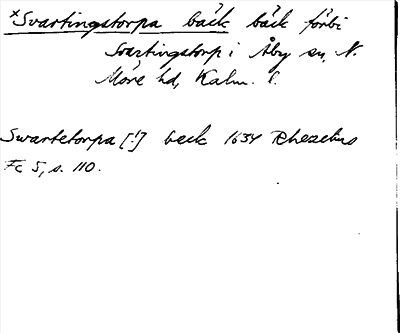 *Svartingstorpa bäck bäck förbi
Svartingstorp i Åby sn, N.
Möre hd, Kalm. l.
Swartetorpa [!] beck 1634 Rhezelius
Fc 5, s. 110.